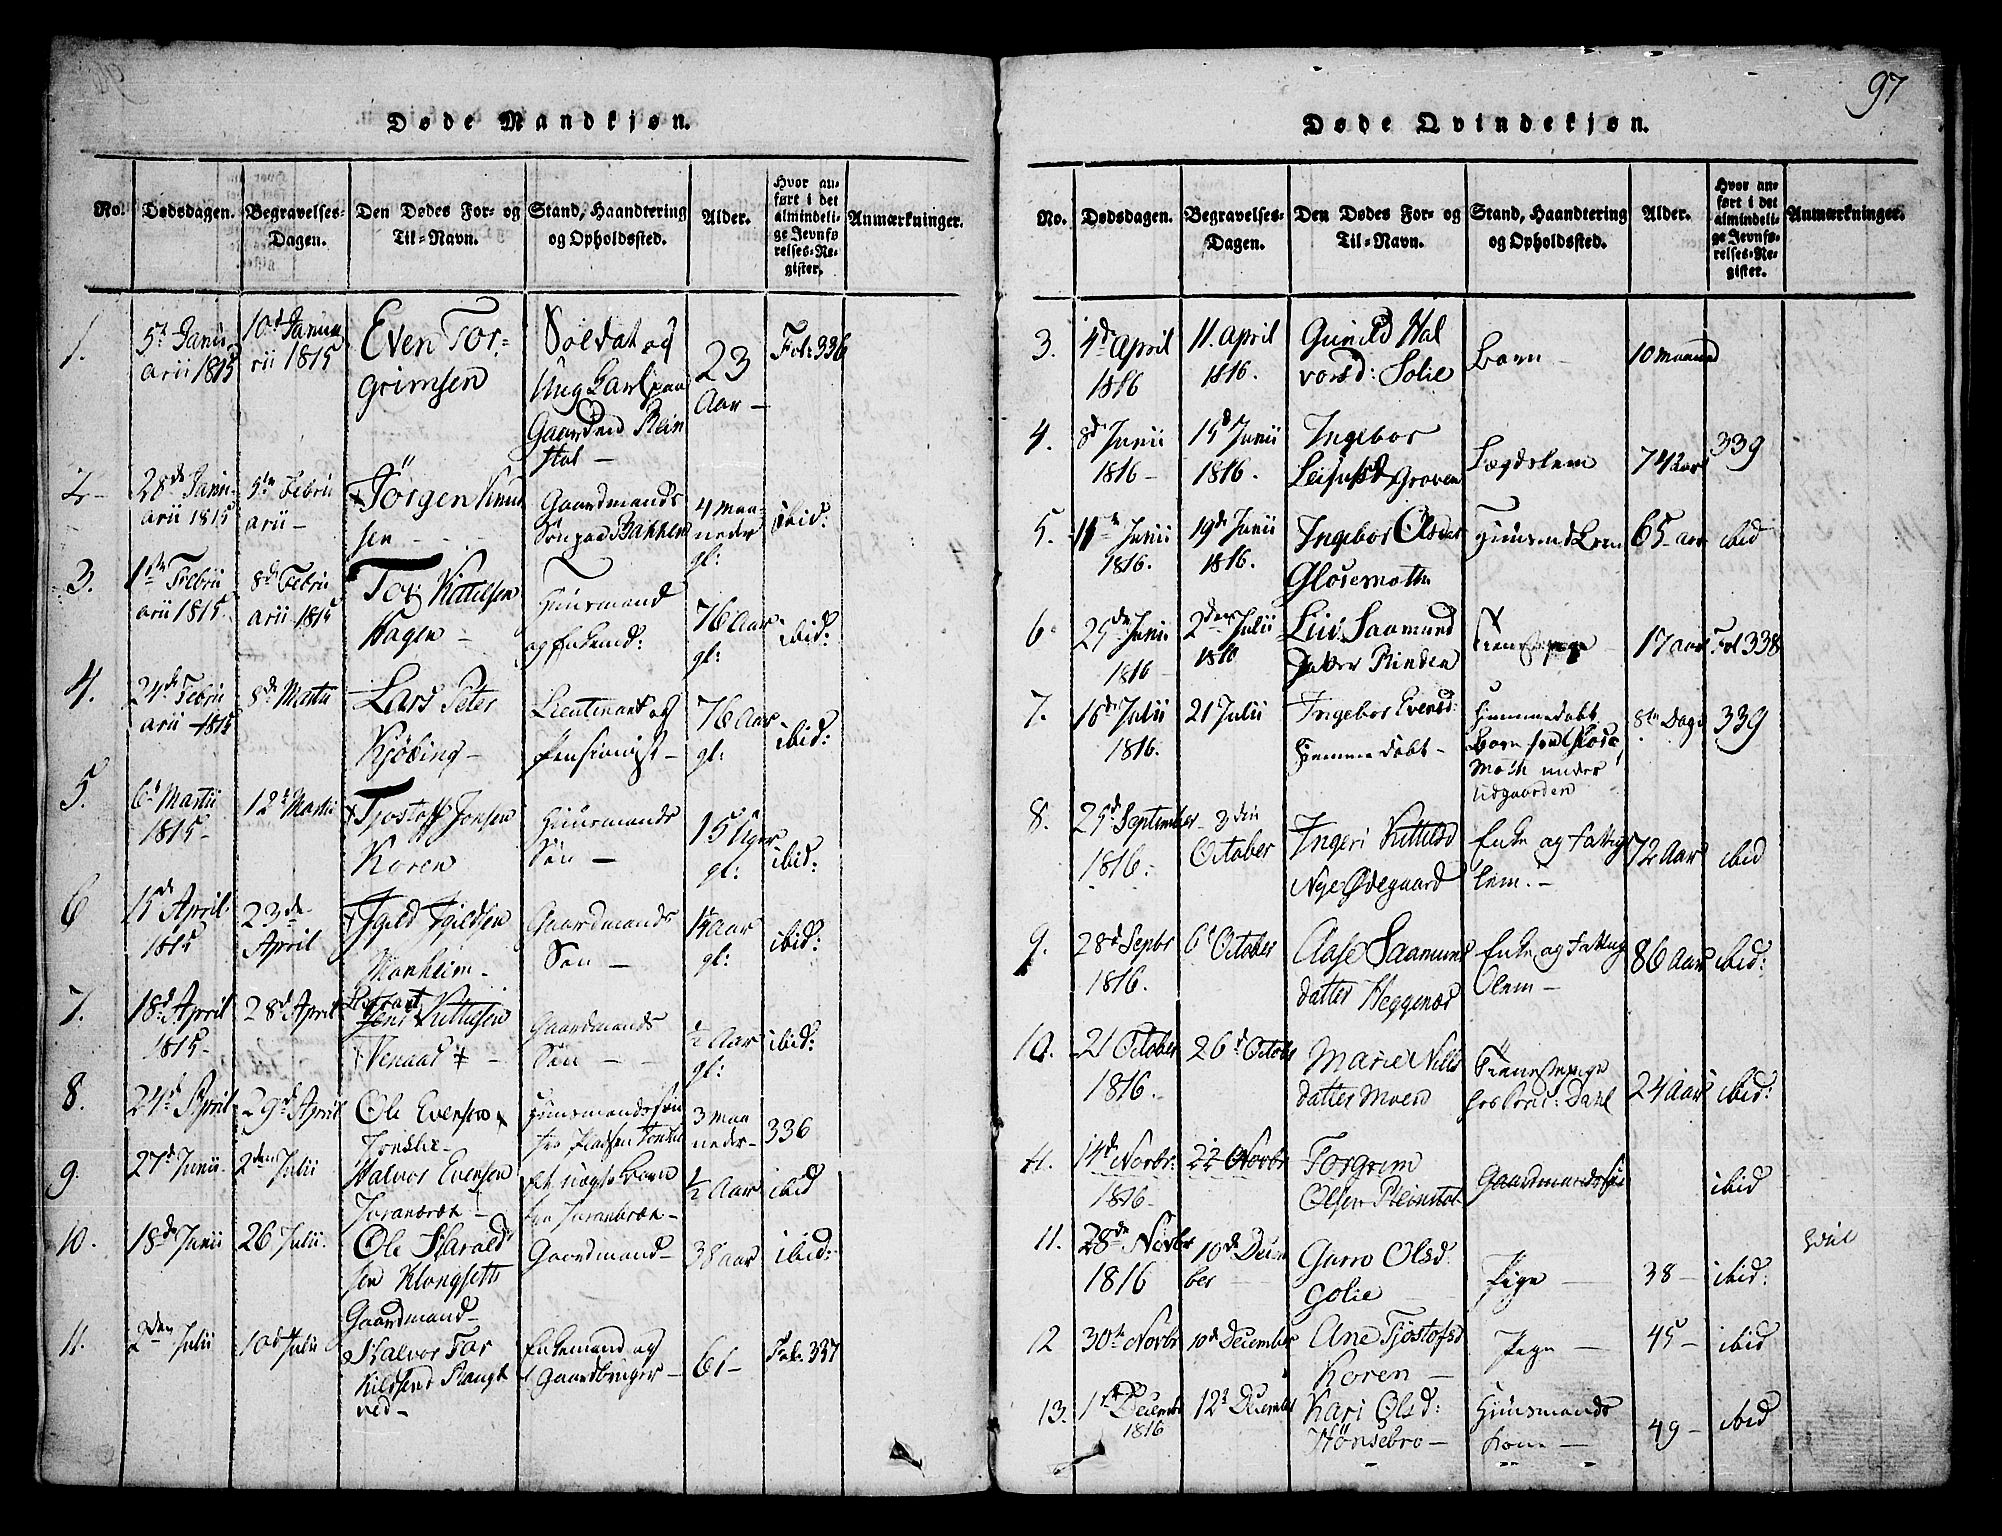 97
Døde Mandkjøn.
No. Dødsdagen. Begravelses-Dagen. Den Dødes For- og Til-Navn. Stand, Haandtering og Opholdssted. Alder. Hvor anført i det almindelige Jevnførelses-Register. Anmærkninger.
1. 5t Januarii 1815 10d Januarii 1815 Even Torgrimsen Soldat og Ung Karl paa Gaarden Reinstal 23 Aar Fol: 336
2 28de Januarii 1815 5te Februarii Jörgen Knudsen Gaardmands Sön paa Bakken 4 maaneder gl: ibid:
3. 1ste Februarii 1815 8de Februarii 1815 Tov Kittilsen Hagen Huusmand og Enkemd: 76 Aar gl: ibid:
4. 24de Februarii 1815 8de Martii Lars Peter Kjöbing Lieutenant og Pensionist 76 Aar gl: ibid:
5. 6t Martii 1815 12t Martii Tjostoff Jonsen Koren Huusmands Sön 15 Uger gl: ibid:
6 15de April 1815 23de April Igild Igildsen Manheim Gaardmands Sön 14 Aar gl: ibid:
7. 18d April 1815 28d April Jens Kittilsen Venaas Gaardmands Sön ½ Aar gl: ibid:
8. 24d April 29d April Ole Evensen Jonslie Huusmandssön fra Pladsen 3 maaneder 336
9. 27d Junii 2den Julii Halvor Evensen Joranbræk et uægte Barn fra Joranbræk ½ Aar ibid
10. 18de Junii 26 Julii Ole Haraldsen Klongseth Gaardmand 38 aar ibid:
11. 2den Julii 10d Julii Gaardmand Halvor Torkildsen Enkemand og Gaardbruger 61 Fol: 337
Døde Qvindekjøn.
No. Dødsdagen. Begravelses-Dagen. Den Dødes For- og Til-Navn. Stand, Haandtering og Opholdssted. Alder. Hvor anført i det almindelige Jevnførelses-Register. Anmærkninger.
3. 4de April 1816 11. April 1816. Gunild Halvorsd: Solie Barn 10 maaned
4. 8de Junii 1816 15d Junii 1816. Ingebor Groven Lægdslem 74 Aar 339
5. 11te Junii 1816. 19de Junii 1816. Ingebor Glosemoth 65 aar ibid
6 25de Junii 1816 2den Julii Liv Saamund Datter Rinden Tienestepige 17 aar Fol 338
7. 16de Julii 1816. 21 Julii Ingebor Evensd: Hjemmedøbt Hjemmedøbt Barn under Udgaarden 8te Dage 339
8. 25d September 1816. 3die October Ingeri Kittilsd Nye Ødegaard Enke og Fattiglem. 72 Aar ibid
9. 28d Septbr 1816. 6t October Aase Saamunsdatter Heggenæs Enke og Fattig 86 Aar ibid:
10. 21 October 1816. 26d Octobr Marie Nilsdatter Moen Tienestepige Dahl 24 Aar ibid:
11. 14de Novbr: 1816. 22 Novbr Torgrim Olsen Reinstal Gaardmandssön ibid
11. 28de Novbr 1816 10de December Gurro Olsd: Golie Pige 38 ibid:
12 30te Novbr 10d December Ane Tjöstofsd Koren Pige 45 ibid
13. 1ste Decembr 1816 12t December Kari Olsd: Hönsebro Huusmands Kone 49 ibid